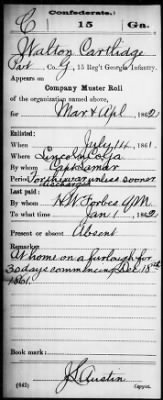 Confederate.
C 15 Ga.
Walton Cartlidge
Pvt., Co. G, 15 Reg't Georgia Infantry.
Appears on
Company Muster Roll
of the organization named above,
for Mar & Apl, 1862
Enlisted:
When July 14, 1861.
Where Lincoln Co Ga
By whom Capt Lamar
Period For the war unless sooner
discharged
Last paid:
By whom H W Forbes QM
To what time Jan 1, 1862
Present or absent Absent
Remarks:
At home on a furlough for
30 days commencing Dec 18th
1861
Book mark:
J S Austin
(642) Copyist.